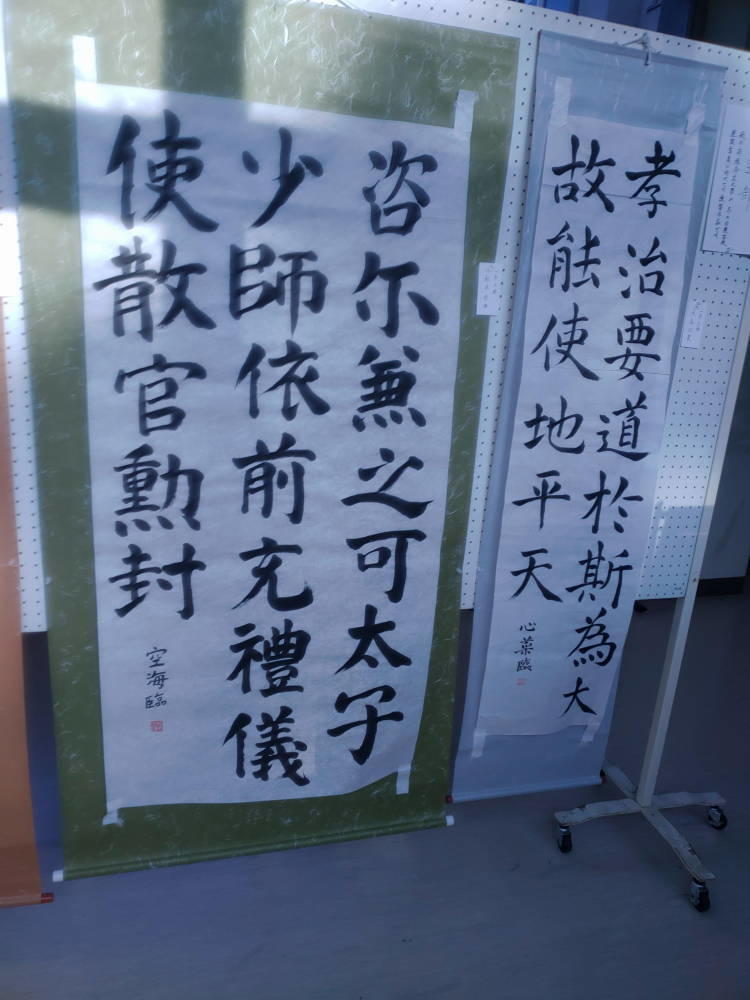 孝治要道於斯為大
故能使地平天
心葉臨
咨尓兼之可太子
少師依前充禮儀
使散官勲封
空海臨